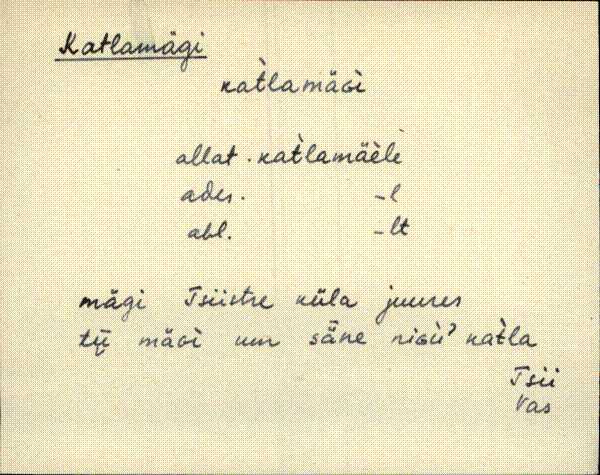 Katlamägi
kat̀lamäɢì
allat. kat̀lamäèle
ades. -l
abl. -lt
mägi Tsiistre küla juures
tįį mäɢì um säne niɢù' kat̀la
Tsii
Vas